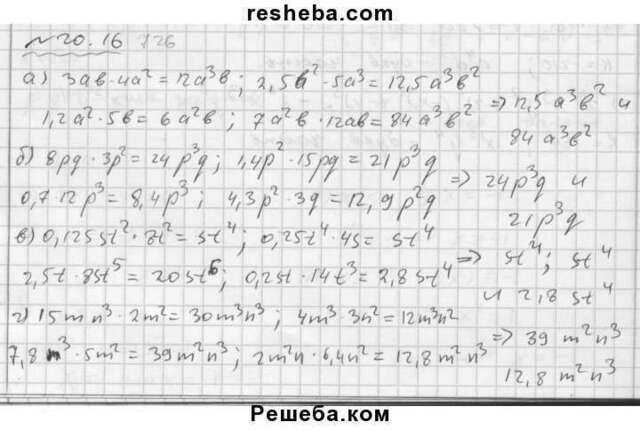 resheba.com
№ 20.16 726
а) 3ab·4a² = 12a³b; 2,5b²·5a³ = 12,5a³b² ⇒ 12,5a³b² и
1,2a²·5b = 6a²b; 7a²b·12ab = 84a³b² 84a³b²
б) 8pq·3p² = 24p³q; 1,4p²·15pq = 21p³q ⇒ 24p³q и
0,7·12p³ = 8,4p³; 4,3p²·3q = 12,9p²q 21p³q
в) 0,125st²·8t² = st⁴; 0,25t⁴·4s = st⁴ ⇒ st⁴; st⁴
2,5t·8st⁵ = 20st⁶; 0,2st·14t³ = 2,8st⁴ и 2,8st⁴
г) 15mn³·2m² = 30m³n³; 4m³·3n² = 12m³n² ⇒ 39m²n³
7,8n³·5m² = 39m²n³; 2m²n·6,4n² = 12,8m²n³ 12,8m²n³
Решеба.ком